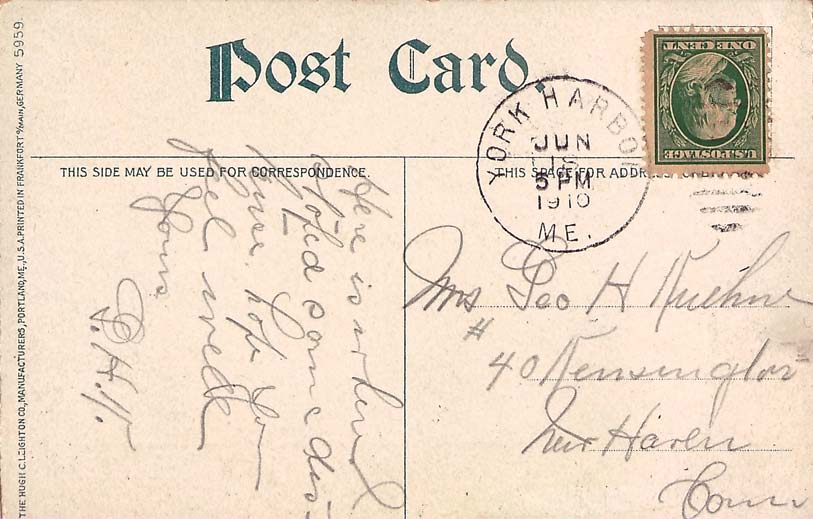 Post Card.
THIS SIDE MAY BE USED FOR CORRESPONDENCE.
THIS SPACE FOR ADDRESS
YORK HARBOR
JUN
5 PM
1910
ME.
ONE CENT
U.S. POSTAGE
Here is where I
stoped some
time. hope you
feel well
Yours
G. H. K.
Mrs Geo H Kuehne
# 40 Kensington
New Haven
Conn
THE HUGH C. LEIGHTON CO., MANUFACTURERS, PORTLAND, ME., U.S.A. PRINTED IN FRANKFORT O/MAIN, GERMANY 5959.